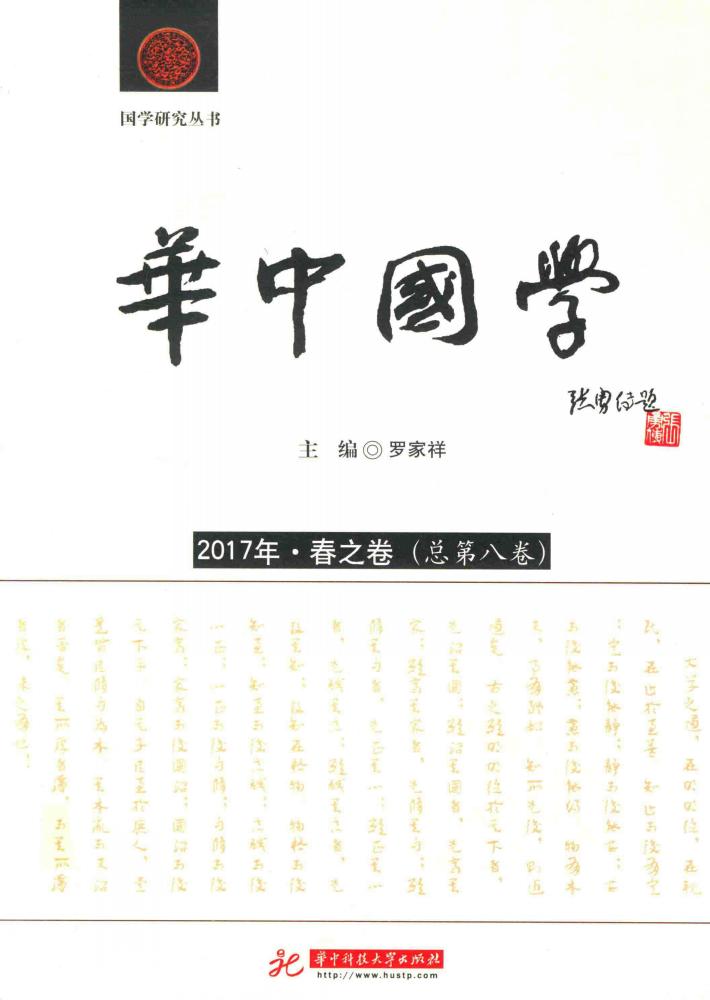 国学研究丛书
華中國學
张勇传题
張勇傳
主 编◎罗家祥
2017年·春之卷（总第八卷）
大学之道，在明明德，在親
民，在止於至善 知止而後有定
；定而後能靜；靜而後能安；安
而後能慮；慮而後能得 物有本
末，事有終始，知所先後，則近
道矣 古之欲明明德於天下者，
先治其國；欲治其國者，先齊其
家；欲齊其家者，先脩其身；欲
脩其身者，先正其心；欲正其心
者，先誠其意；欲誠其意者，先
致其知；致知在格物 物格而後
知至；知至而後意誠；意誠而後
心正；心正而後身脩；身脩而後
家齊；家齊而後國治；國治而後
天下平 自天子以至於庶人，壹
是皆以脩身為本 其本亂而末治
者否矣 其所厚者薄，而其所薄
者厚，未之有也！
華中科技大学出版社
http://www.hustp.com